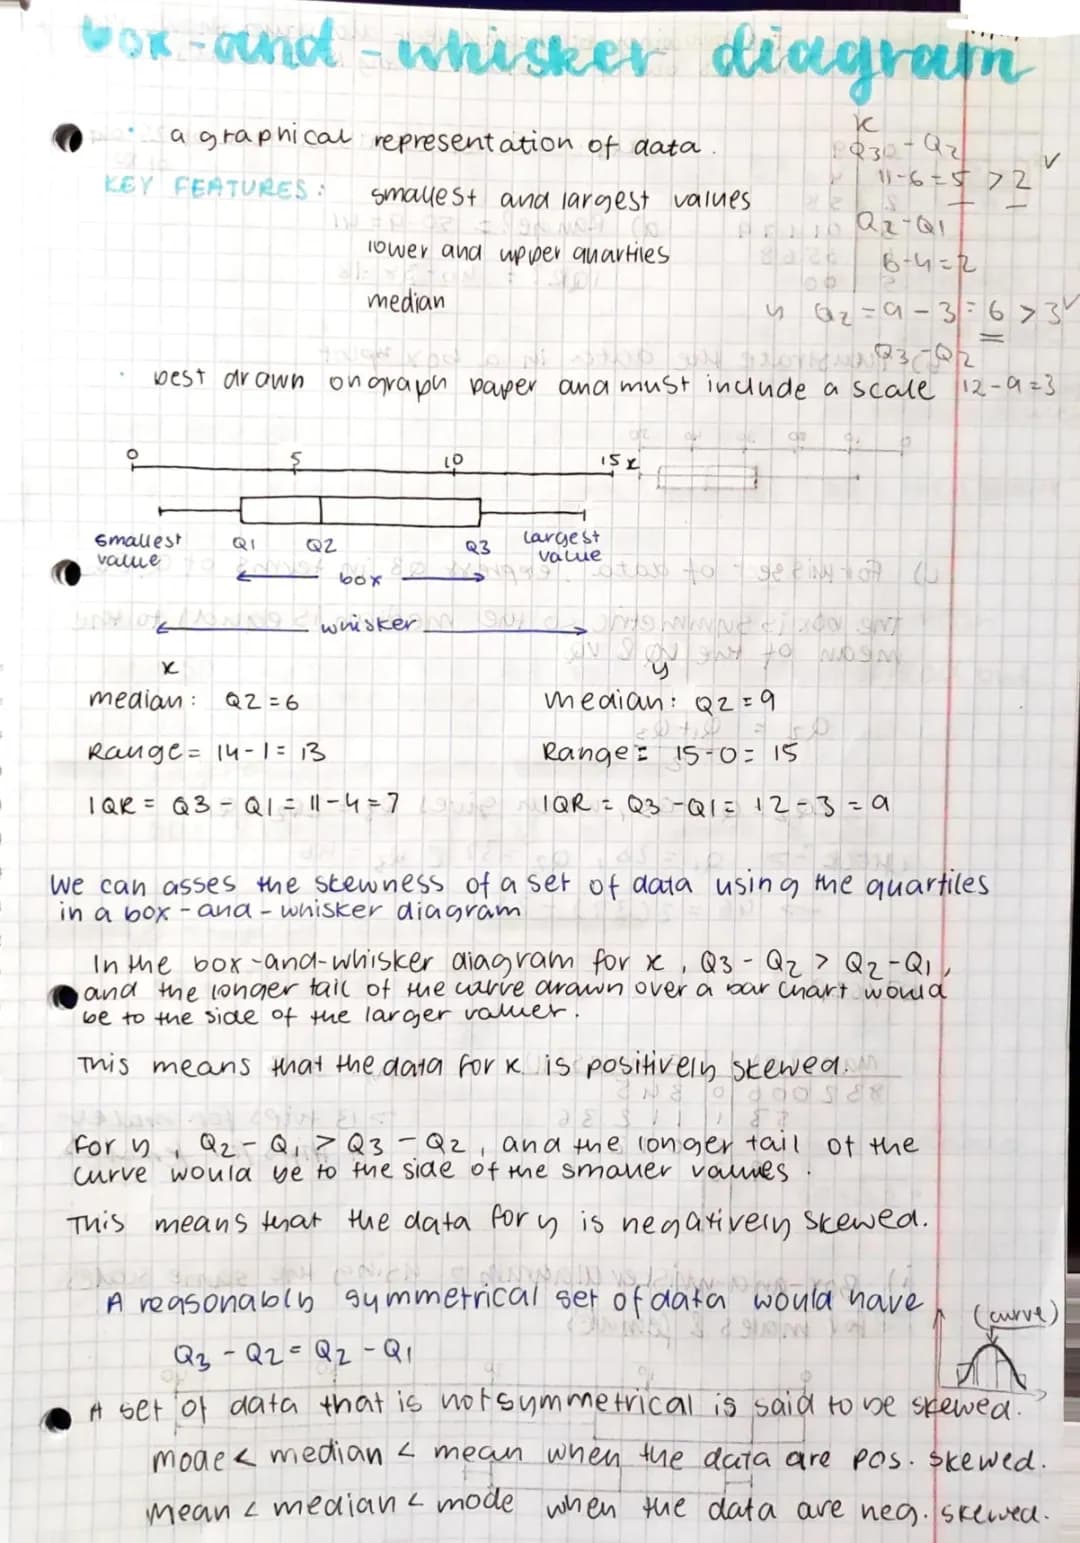 box-and-whisker diagram
a graphical representation of data.
KEY FEATURES: smallest and largest values
lower and upper quartiles
median
x
Q3 - Q2
11-6=5 > 2 ✓
Q2-Q1
6-4=2
y Q2 = 9 - 3 = 6 > 3 ✓
Q3-Q2
12-9=3
best drawn on graph paper and must include a scale
0 5 10 15 x
smallest value Q1 Q2 Q3 largest value
box
whisker
x y
median: Q2=6 median: Q2=9
Range= 14-1= 13 Range= 15-0= 15
IQR = Q3 - Q1 = 11-4=7 IQR = Q3-Q1= 12-3 = 9
We can asses the skewness of a set of data using the quartiles
in a box-and-whisker diagram
In the box-and-whisker diagram for x, Q3 - Q2 > Q2-Q1,
and the longer tail of the curve drawn over a bar chart would
be to the side of the larger values.
This means that the data for x is positively skewed.
For y, Q2 - Q1 > Q3 - Q2, and the longer tail of the
curve would be to the side of the smaller values.
This means that the data for y is negatively skewed.
A reasonably symmetrical set of data would have
(curve)
Q3 - Q2 = Q2 - Q1
A set of data that is not symmetrical is said to be skewed.
mode < median < mean when the data are pos. skewed.
Mean < median < mode when the data are neg. skewed.